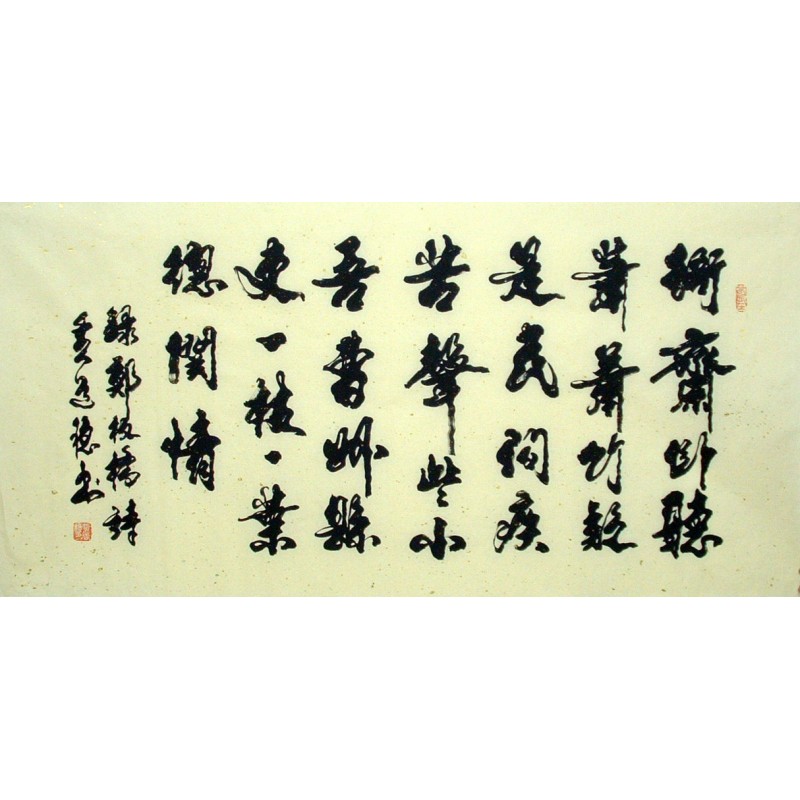 衙齋卧聽
蕭蕭竹疑
是民間疾
苦聲些小
吾曹州縣
吏一枝一葉
總関情
錄鄭板橋詩
書